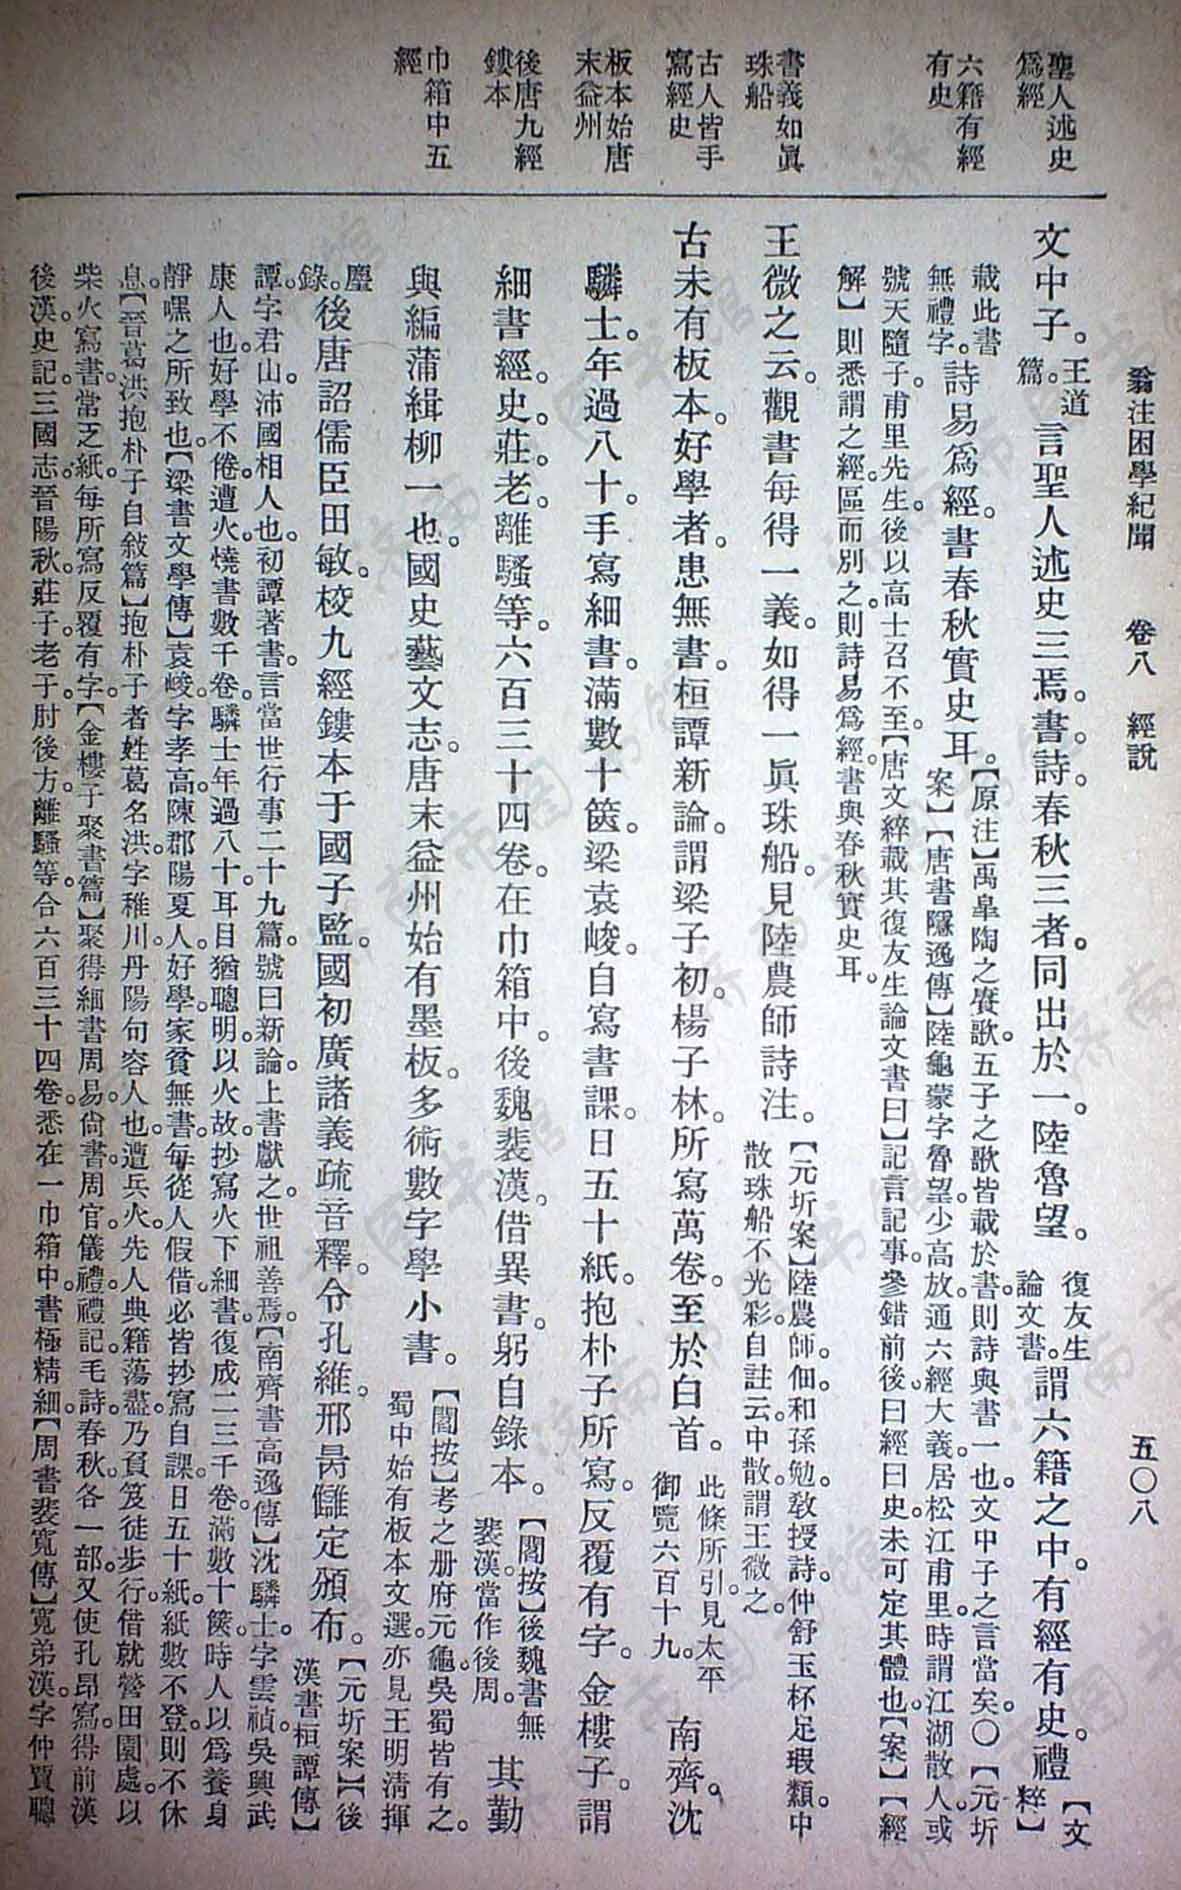 翁注困學紀聞　卷八　經說　五〇八
聖人述史
爲經
六籍有經
有史
書義如眞
珠船
古人皆手
寫經史
板本始唐
末益州
後唐九經
鏤本
巾箱中五
經
文中子。王道篇。言聖人述史三焉。書詩。春秋三者。同出於一。陸魯望。復友生論文書。謂六籍之中。有經有史。禮【文粹】
載此書無禮字。詩易爲經。書春秋實史耳。【原注】禹皐陶之賡歌。五子之歌皆載於書。則詩與書一也。文中子之言當矣。〇【元圻案】【唐書隱逸傳】陸龜蒙字魯望。少高放。通六經大義。居松江甫里。時謂江湖散人。或
號天隨子。甫里先生。後以高士召不至。【唐文綷載其復友生論文書曰】記言記事。參錯前後。曰經曰史。未可定其體也。【案】【經
解】則悉謂之經。區而別之。則詩易爲經。書與春秋實史耳。
王微之云。觀書每得一義。如得一眞珠船。見陸農師詩注。【元圻案】陸農師。佃。和孫勉。敎授詩。仲舒玉杯足瑕纇。中散珠船不光彩。自註云。中散。謂王微之。
古未有板本。好學者。患無書。桓譚新論。謂梁子初。楊子林。所寫萬卷。至於白首。此條所引。見太平御覽六百十九。南齊。沈
驎士。年過八十。手寫細書。滿數十篋。梁袁峻。自寫書課。日五十紙。抱朴子所寫。反覆有字。金樓子。謂
細書經。史。莊。老。離騷等。六百三十四卷。在巾箱中。後魏裴漢。借異書。躬自錄本。【閻按】後魏書無裴漢。當作後周。其勤
與編蒲緝柳一也。國史藝文志。唐末益州始有墨板。多術數字學小書。【閻按】考之册府元龜。吳蜀皆有之。蜀中始有板本文選。亦見王明淸揮
麈錄。後唐詔儒臣田敏。校九經鏤本于國子監。國初廣諸義疏音釋。令孔維。邢昺讎定頒布。【元圻案】【後漢書桓譚傳】
譚字君山。沛國相人也。初譚著書。言當世行事二十九篇。號曰新論。上書獻之。世祖善焉。【南齊書高逸傳】沈驎士。字雲禎。吳興武
康人也。好學不倦。遭火。燒書數千卷。驎士年過八十。耳目猶聰明。以火故。抄寫火下細書。復成二三千卷。滿數十篋。時人以爲養身
靜嘿之所致也。【梁書文學傳】袁峻。字孝高。陳郡陽夏人。好學。家貧無書。每從人假借。必皆抄寫。自課。日五十紙。紙數不登。則不休
息。【晉葛洪抱朴子自敍篇】抱朴子者。姓葛名洪。字稚川。丹陽句容人也。遭兵火。先人典籍蕩盡。乃負笈徒步行。借就營田園處。以
柴火寫書。常乏紙。每所寫反覆有字。【金樓子聚書篇】聚得細書周易。尙書。周官。儀禮。禮記。毛詩。春秋。各一部。又使孔昂寫。得前漢
後漢。史記。三國志。晉陽秋。莊子。老子。肘後方。離騷等。合六百三十四卷。悉在一巾箱中。書極精細。【周書裴寬傳】寬弟漢。字仲賈。聰